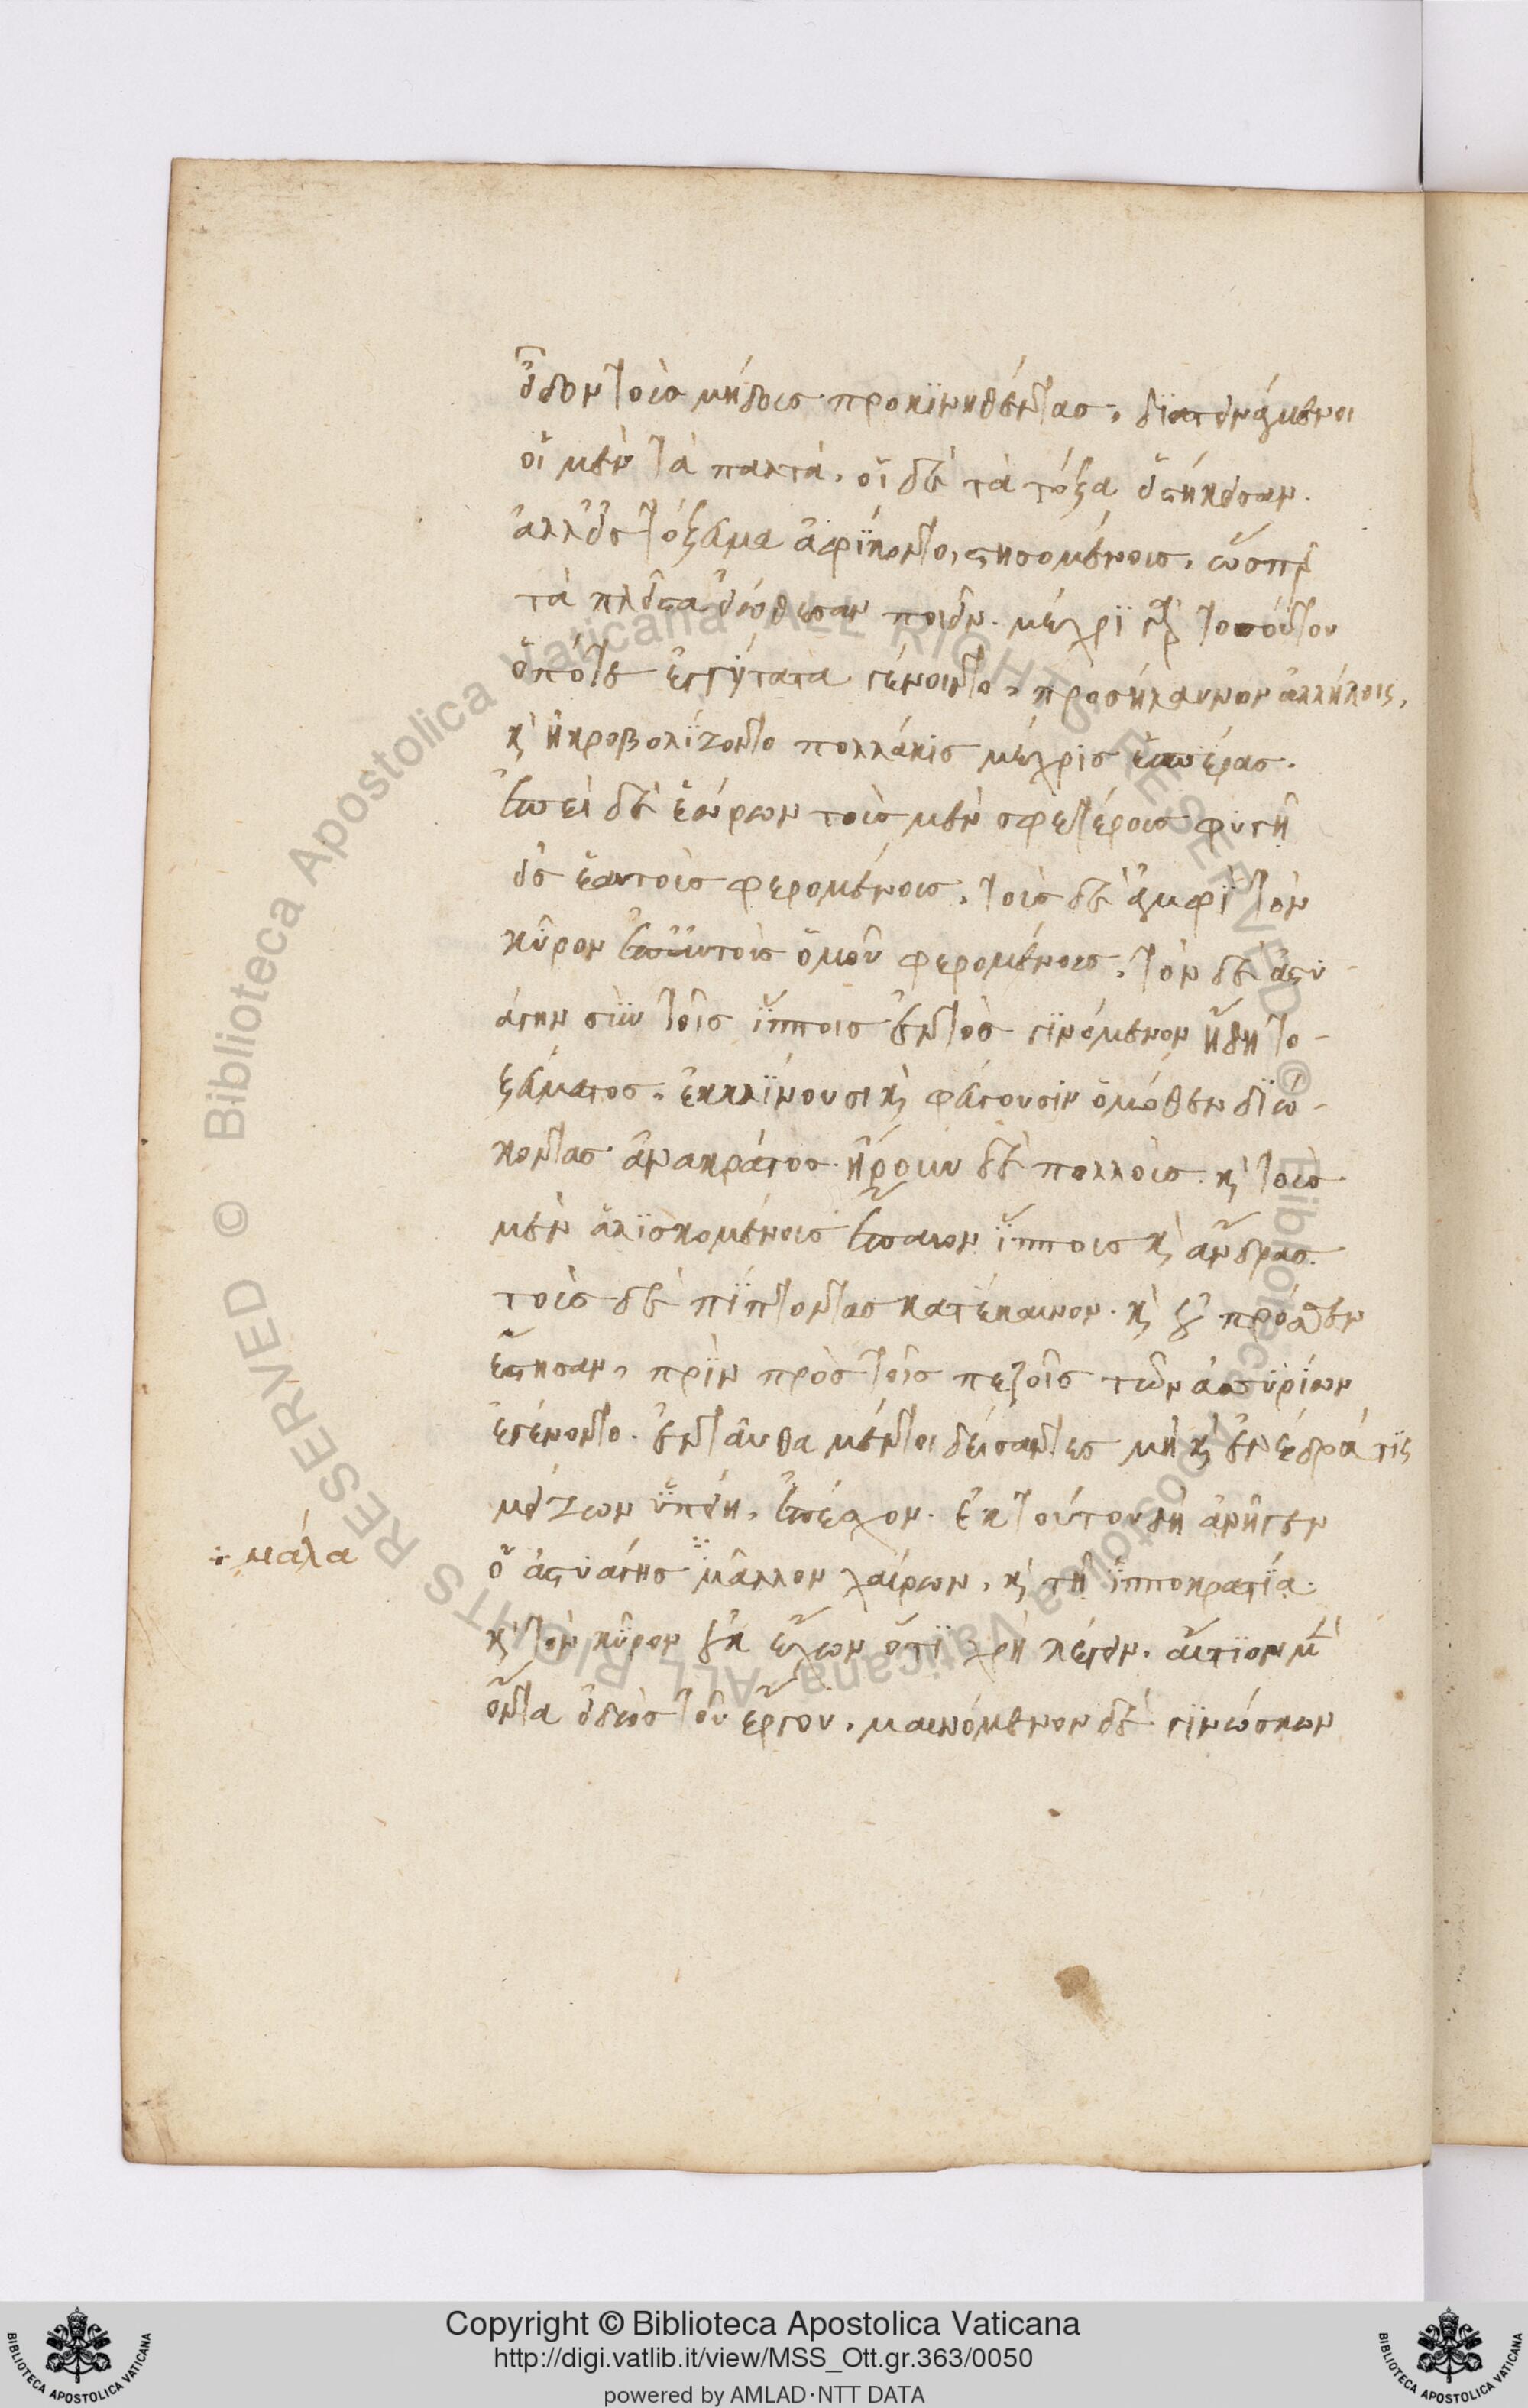 εἶδον τοὺς μήδους προκϊνηθέντας, δϊατεινάμενοι
οἱ μὲν τὰ παλτὰ, οἱ δὲ τὰ τόξα εἱστήκεισαν.
ἀλλ' εἰς τόξευμα ἀφίκοντο, στησομένους, ὥσπερ
τὰ πλεῖστα εἰώθεσαν ποιεῖν. μέχρϊ γὰρ τοσούτου
ὁπότε ἐγγύτατα γένοιντο, προσήλαυνον ἀλλήλοις,
καὶ ἠκροβολίζοντο πολλάκις μέχρις ἑσπέρας.
ἐπεὶ δὲ ἑώρων τοὺς μὲν σφετέρους φυγῇ
εἰς ἑαυτοὺς φερομένους, τοὺς δὲ ἀμφὶ τὸν
κῦρον ἐπ' αὐτοὺς ὁμοῦ φερομένους, τὸν δὲ ἀστυ-
άγην σὺν τοῖς ἵπποις ἐντὸς γϊνόμενον ἤδη το-
ξεύματος, ἐκκλίνουσι καὶ φεύγουσιν ὁμόθεν διώ-
κοντας ἀνακράτος. ᾕρουν δὲ πολλοὺς. καὶ τοὺς
μὲν ἁλϊσκομένους ἔπαιον ἵππους καὶ ἄνδρας.
τοὺς δὲ πίπτοντας κατέκαινον. καὶ οὐ πρόσθεν
ἔστησαν, πρὶν πρὸς τοῖς πεζοῖς τῶν ἀσσυρίων
ἐγένοντο. ἐνταῦθα μέντοι δείσαντες μὴ καὶ ἐνέδρα τϊς
μείζων ὑπείη, ἐπέσχον. ἐκ τούτου δὴ ἀνῆγεν
ὁ ἀστυάγης μᾶλλον χαίρων, καὶ τῇ ἱπποκρατίᾳ.
μάλα
καὶ τὸν κῦρον οὐκ ἔχων ὅτϊ χρὴ λέγειν. αἴτϊον μὲν
ὄντα εἰδὼς τοῦ ἔργου, μαινόμενον δὲ γϊνώσκων
Copyright © Biblioteca Apostolica Vaticana
http://digi.vatlib.it/view/MSS_Ott.gr.363/0050
powered by AMLAD·NTT DATA